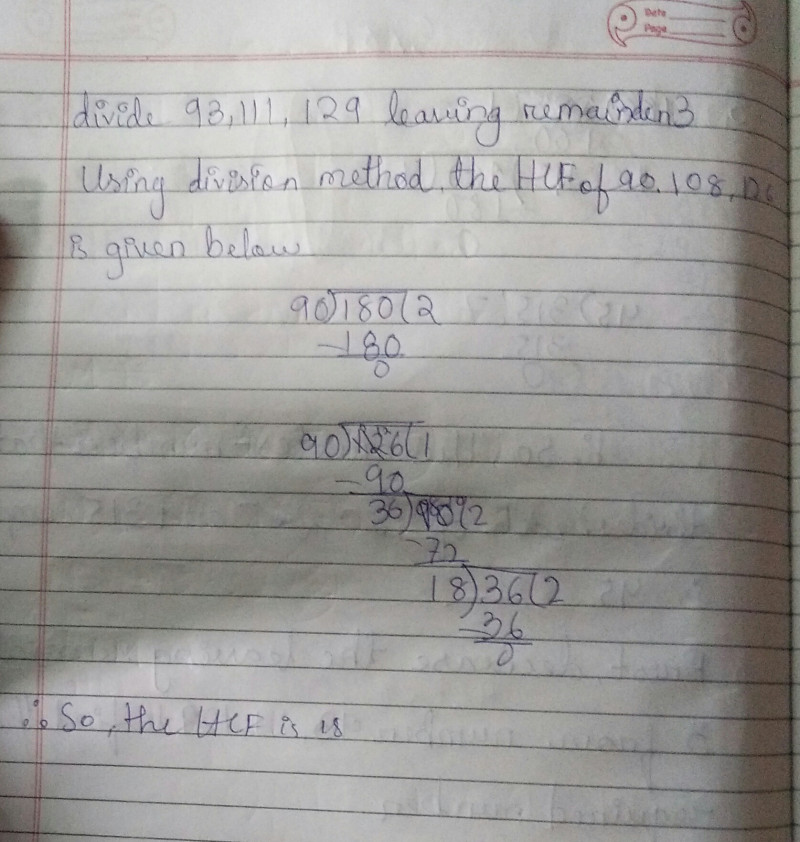 Date
Page
divide 93,111, 129 leaving remainden3
Using division method, the HCF of 90, 108, 126
is given below
90)180(2
-180
0
90)126(1
-90
36)90(2
-72
18)36(2
-36
0
∴ So, the HCF is 18